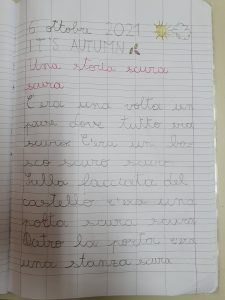 6 ottobre 2021
IT'S AUTUMN
Una storia scura
scura
C'era una volta un
paese dove tutto era
scuro. C'era un bo
sco scuro scuro.
Sulla facciata del
castello c'era una
porta scura scura
Dietro la porta c'era
una stanza scura